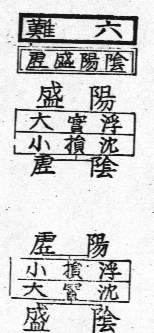 六難
陰陽盛虛
陽盛
浮實大
沈損小
陰虛
陽虛
浮損小
沈實大
陰盛